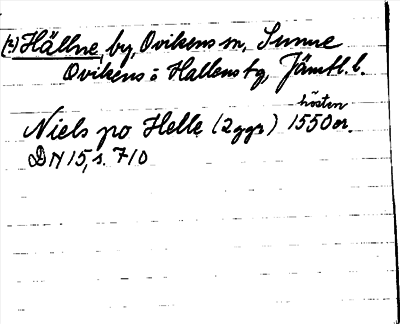 (3) Hällne, by, Ovikens sn, Sunne
Ovikens o Hallens tg, Jämtl. l.
hösten
Niels po Helle (2ggr) 1550
DN 15, s. 710